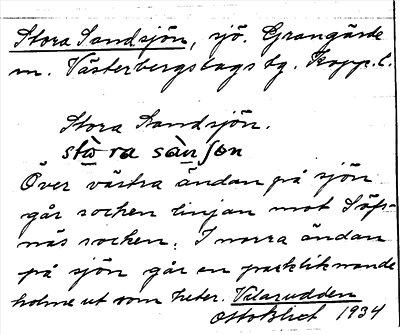 Stora Sandsjön, sjö. Grangärde
m. Västerbergslags tg. Kopp. l.
Stora Sandsjön.
stò ra sàn ʃon
Över västra ändan på sjön
går socken linjan mot Säfs-
näs socken. I norra ändan
på sjön går en parkliknande
holme ut som heter. Vilarudden
1934